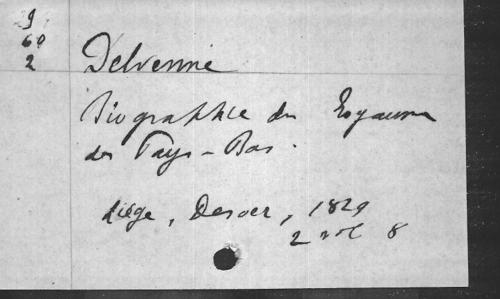 9
60
2
Delvenne
Biographie du Royaume
des Pays-Bas.
Liége, Desoer, 1829
2 vol 8